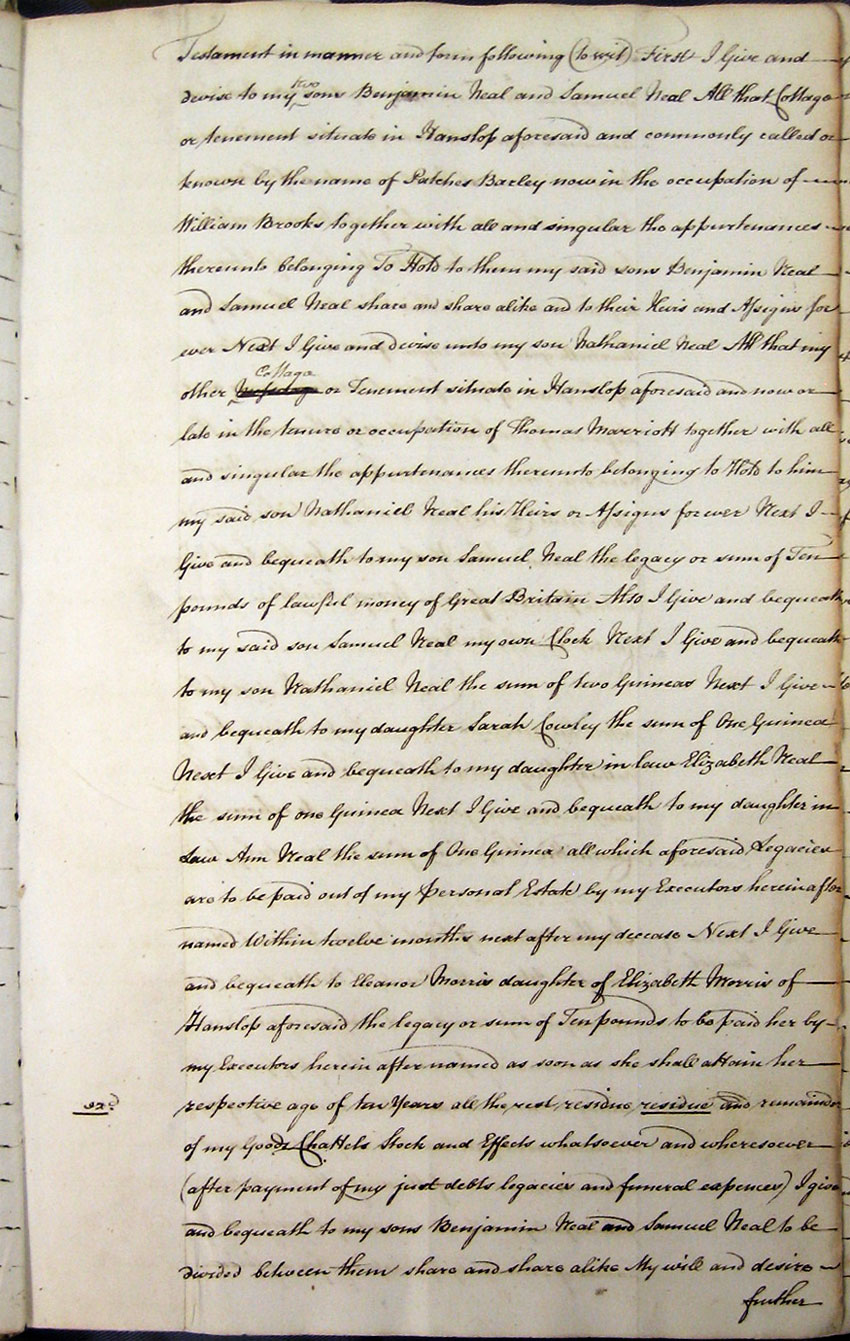 Testament in manner and form following (to wit) First I Give and
two
devise to my sons Benjamin Neal and Samuel Neal All that Cottage
or tenement situate in Hanslop aforesaid and commonly called or
known by the name of Patches Barley now in the occupation of
William Brooks together with all and singular the appurtenances
thereunto belonging To Hold to them my said sons Benjamin Neal
and Samuel Neal share and share alike and to their Heirs and Assigns for
ever Next I Give and devise unto my son Nathaniel Neal All that my
Cottage
other or Tenement situate in Hanslop aforesaid and now or
late in the tenure or occupation of Thomas Marriott together with all
and singular the appurtenances thereunto belonging to Hold to him
my said son Nathaniel Neal his Heirs or Assigns for ever Next I
Give and bequeath to my son Samuel Neal the legacy or sum of Ten
pounds of lawful money of Great Britain Also I Give and bequeath
to my said son Samuel Neal my own Clock Next I Give and bequeath
to my son Nathaniel Neal the sum of two Guineas Next I Give
and bequeath to my daughter Sarah Cowley the sum of One Guinea
Next I Give and bequeath to my daughter in law Elizabeth Neal
the sum of one Guinea Next I Give and bequeath to my daughter in
Law Ann Neal the sum of One Guinea all which aforesaid Legacies
are to be paid out of my Personal Estate by my Executors herein after
named Within twelve months next after my decease Next I Give
and bequeath to Eleanor Morris daughter of Elizabeth Morris of
Hanslop aforesaid the legacy or sum of Ten pounds to be paid her by
my Executors herein after named as soon as she shall attain her
respective age of ten Years all the rest residue residue and remainder
of my Goods Chattels Stock and Effects whatsoever and wheresoever
(after payment of my just debts legacies and funeral expences) I give
and bequeath to my sons Benjamin Neal and Samuel Neal to be
divided between them share and share alike My will and desire
further